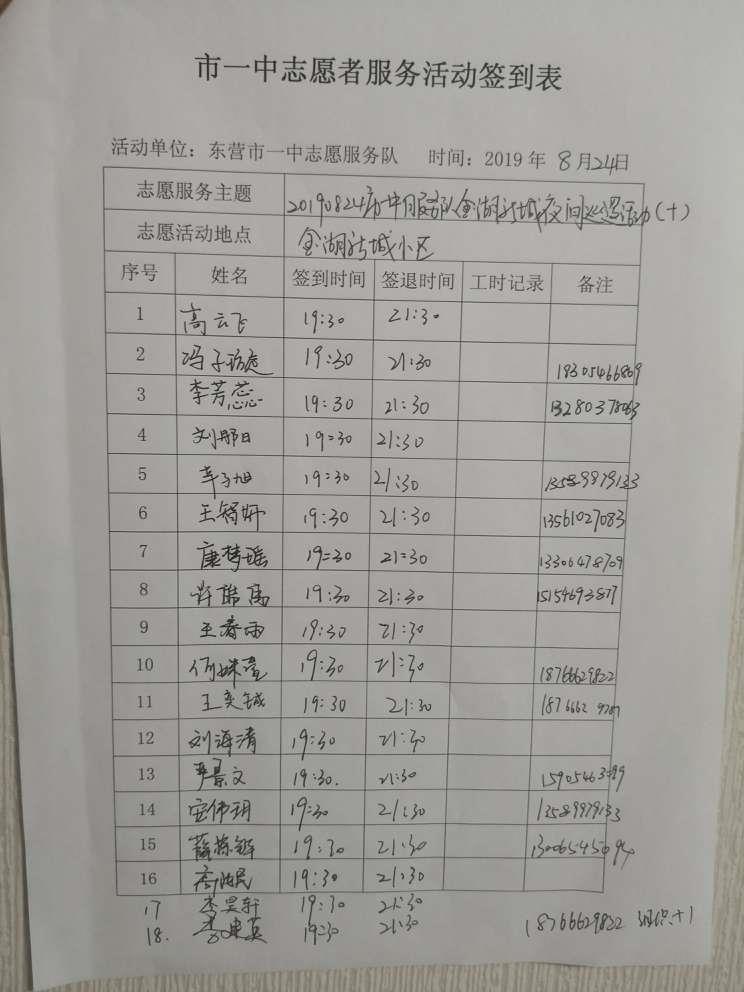 市一中志愿者服务活动签到表
活动单位：东营市一中志愿服务队 时间：2019 年 8 月 24 日
志愿服务主题 20190824市一中服务队金湖新城夜间巡逻活动（十）
志愿活动地点 金湖新城小区
序号 姓名 签到时间 签退时间 工时记录 备注
1 高云飞 19:30 21:30
2 冯子 19:30 21:30
3 李芳蕊 19:30 21:30
4 刘 19:30 21:30
5 辛子旭 19:30 21:30
6 王 19:30 21:30 13561027083
7 康梦瑶 19:30 21:30 13306478709
8 许 19:30 21:30 15154693877
9 王春雨 19:30 21:30
10 19:30 21:30 18766629822
11 王奕铖 19:30 21:30
12 刘海清 19:30 21:30
13 景文 19:30. 21:30
14 伟玥 19:30 21:30
15 薛 19:30 21:30
16 19:30 21:30
17 李昊轩 19:30 21:30
18. 19:30 21:30 18766629822 组织+1